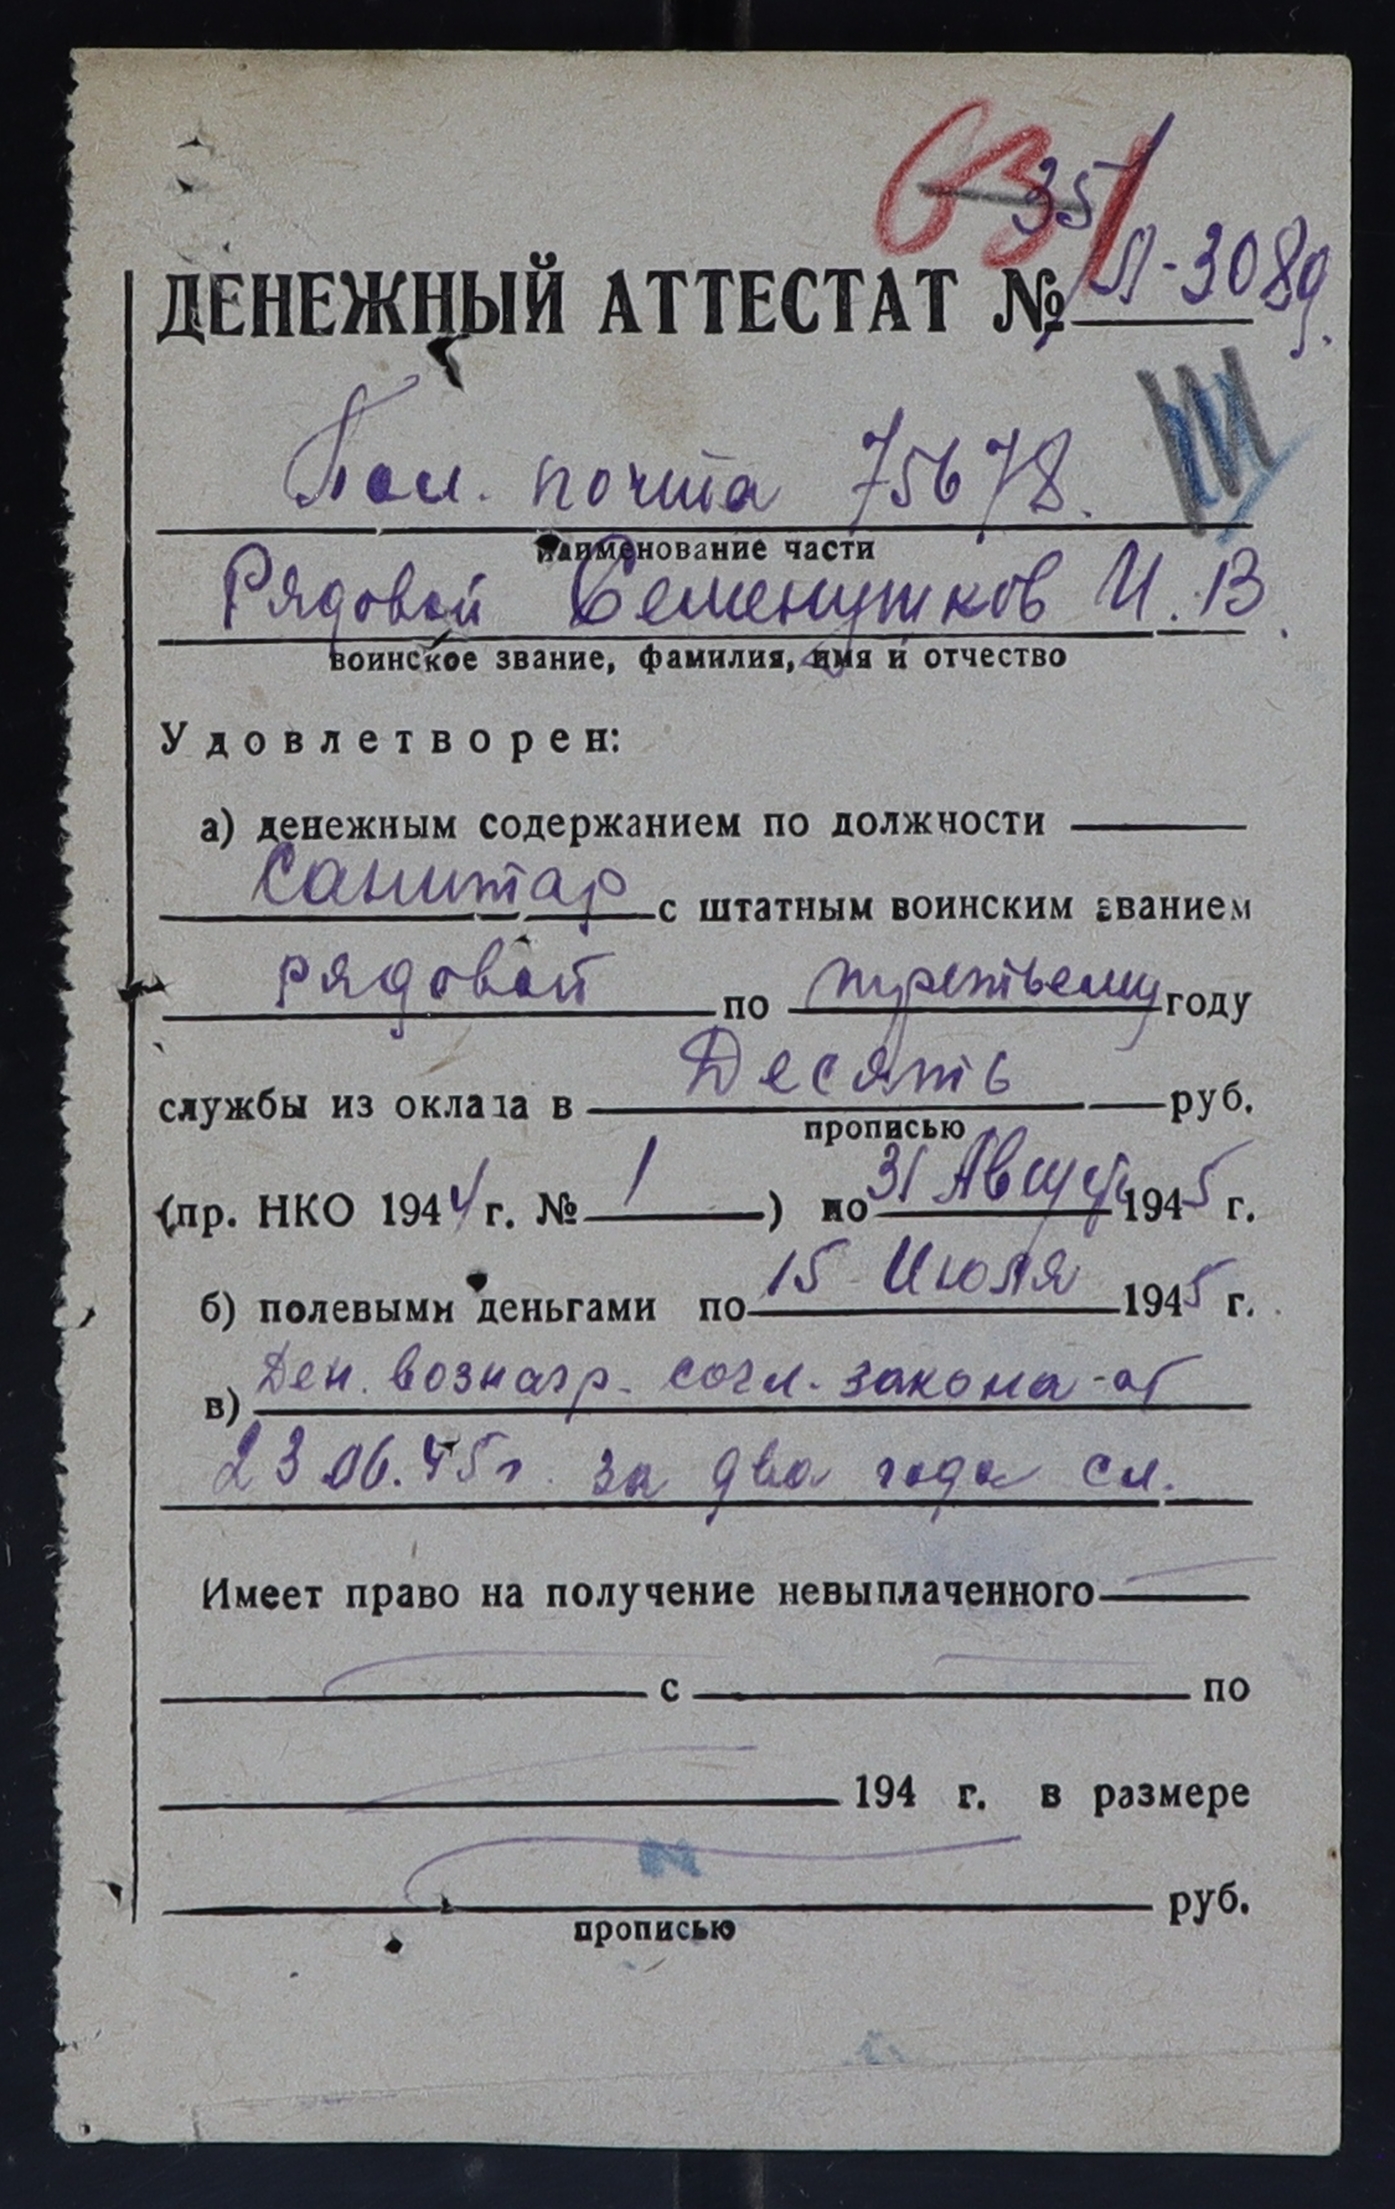 631
35
ДЕНЕЖНЫЙ АТТЕСТАТ № Л-3089.
Пол. почта 75678.
наименование части
Рядовой Семенушков И. В.
воинское звание, фамилия, имя и отчество
Удовлетворен:
а) денежным содержанием по должности
Санитар с штатным воинским званием
рядовой по третьему году
службы из оклада в Десять руб.
прописью
(пр. НКО 1944 г. № 1 ) по 31 Август 1945 г.
б) полевыми деньгами по 15 Июля 1945 г.
в) Ден. вознагр. согл. закона от
23.06.45г. за два года сл.
Имеет право на получение невыплаченного
с по
194 г. в размере
руб.
прописью